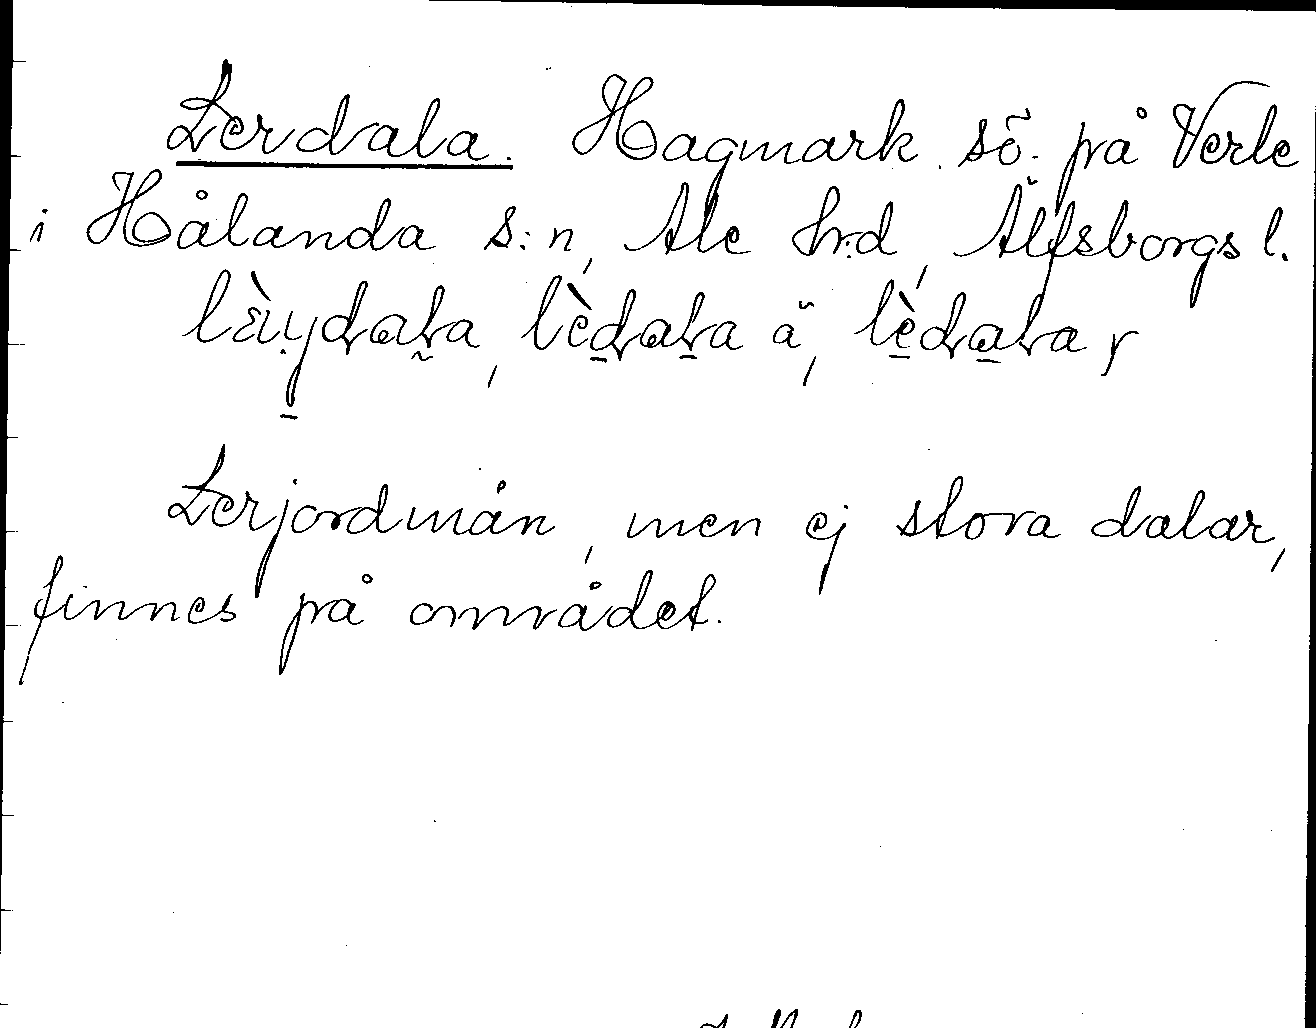 Lerdala. Hagmark sö. på Verle
i Hålanda s:n, Ale hrd, Älfsborgs l.
lèdaḻa ä, lèdaḻa y
Lerjordmån, men ej stora dalar,
finnes på området.